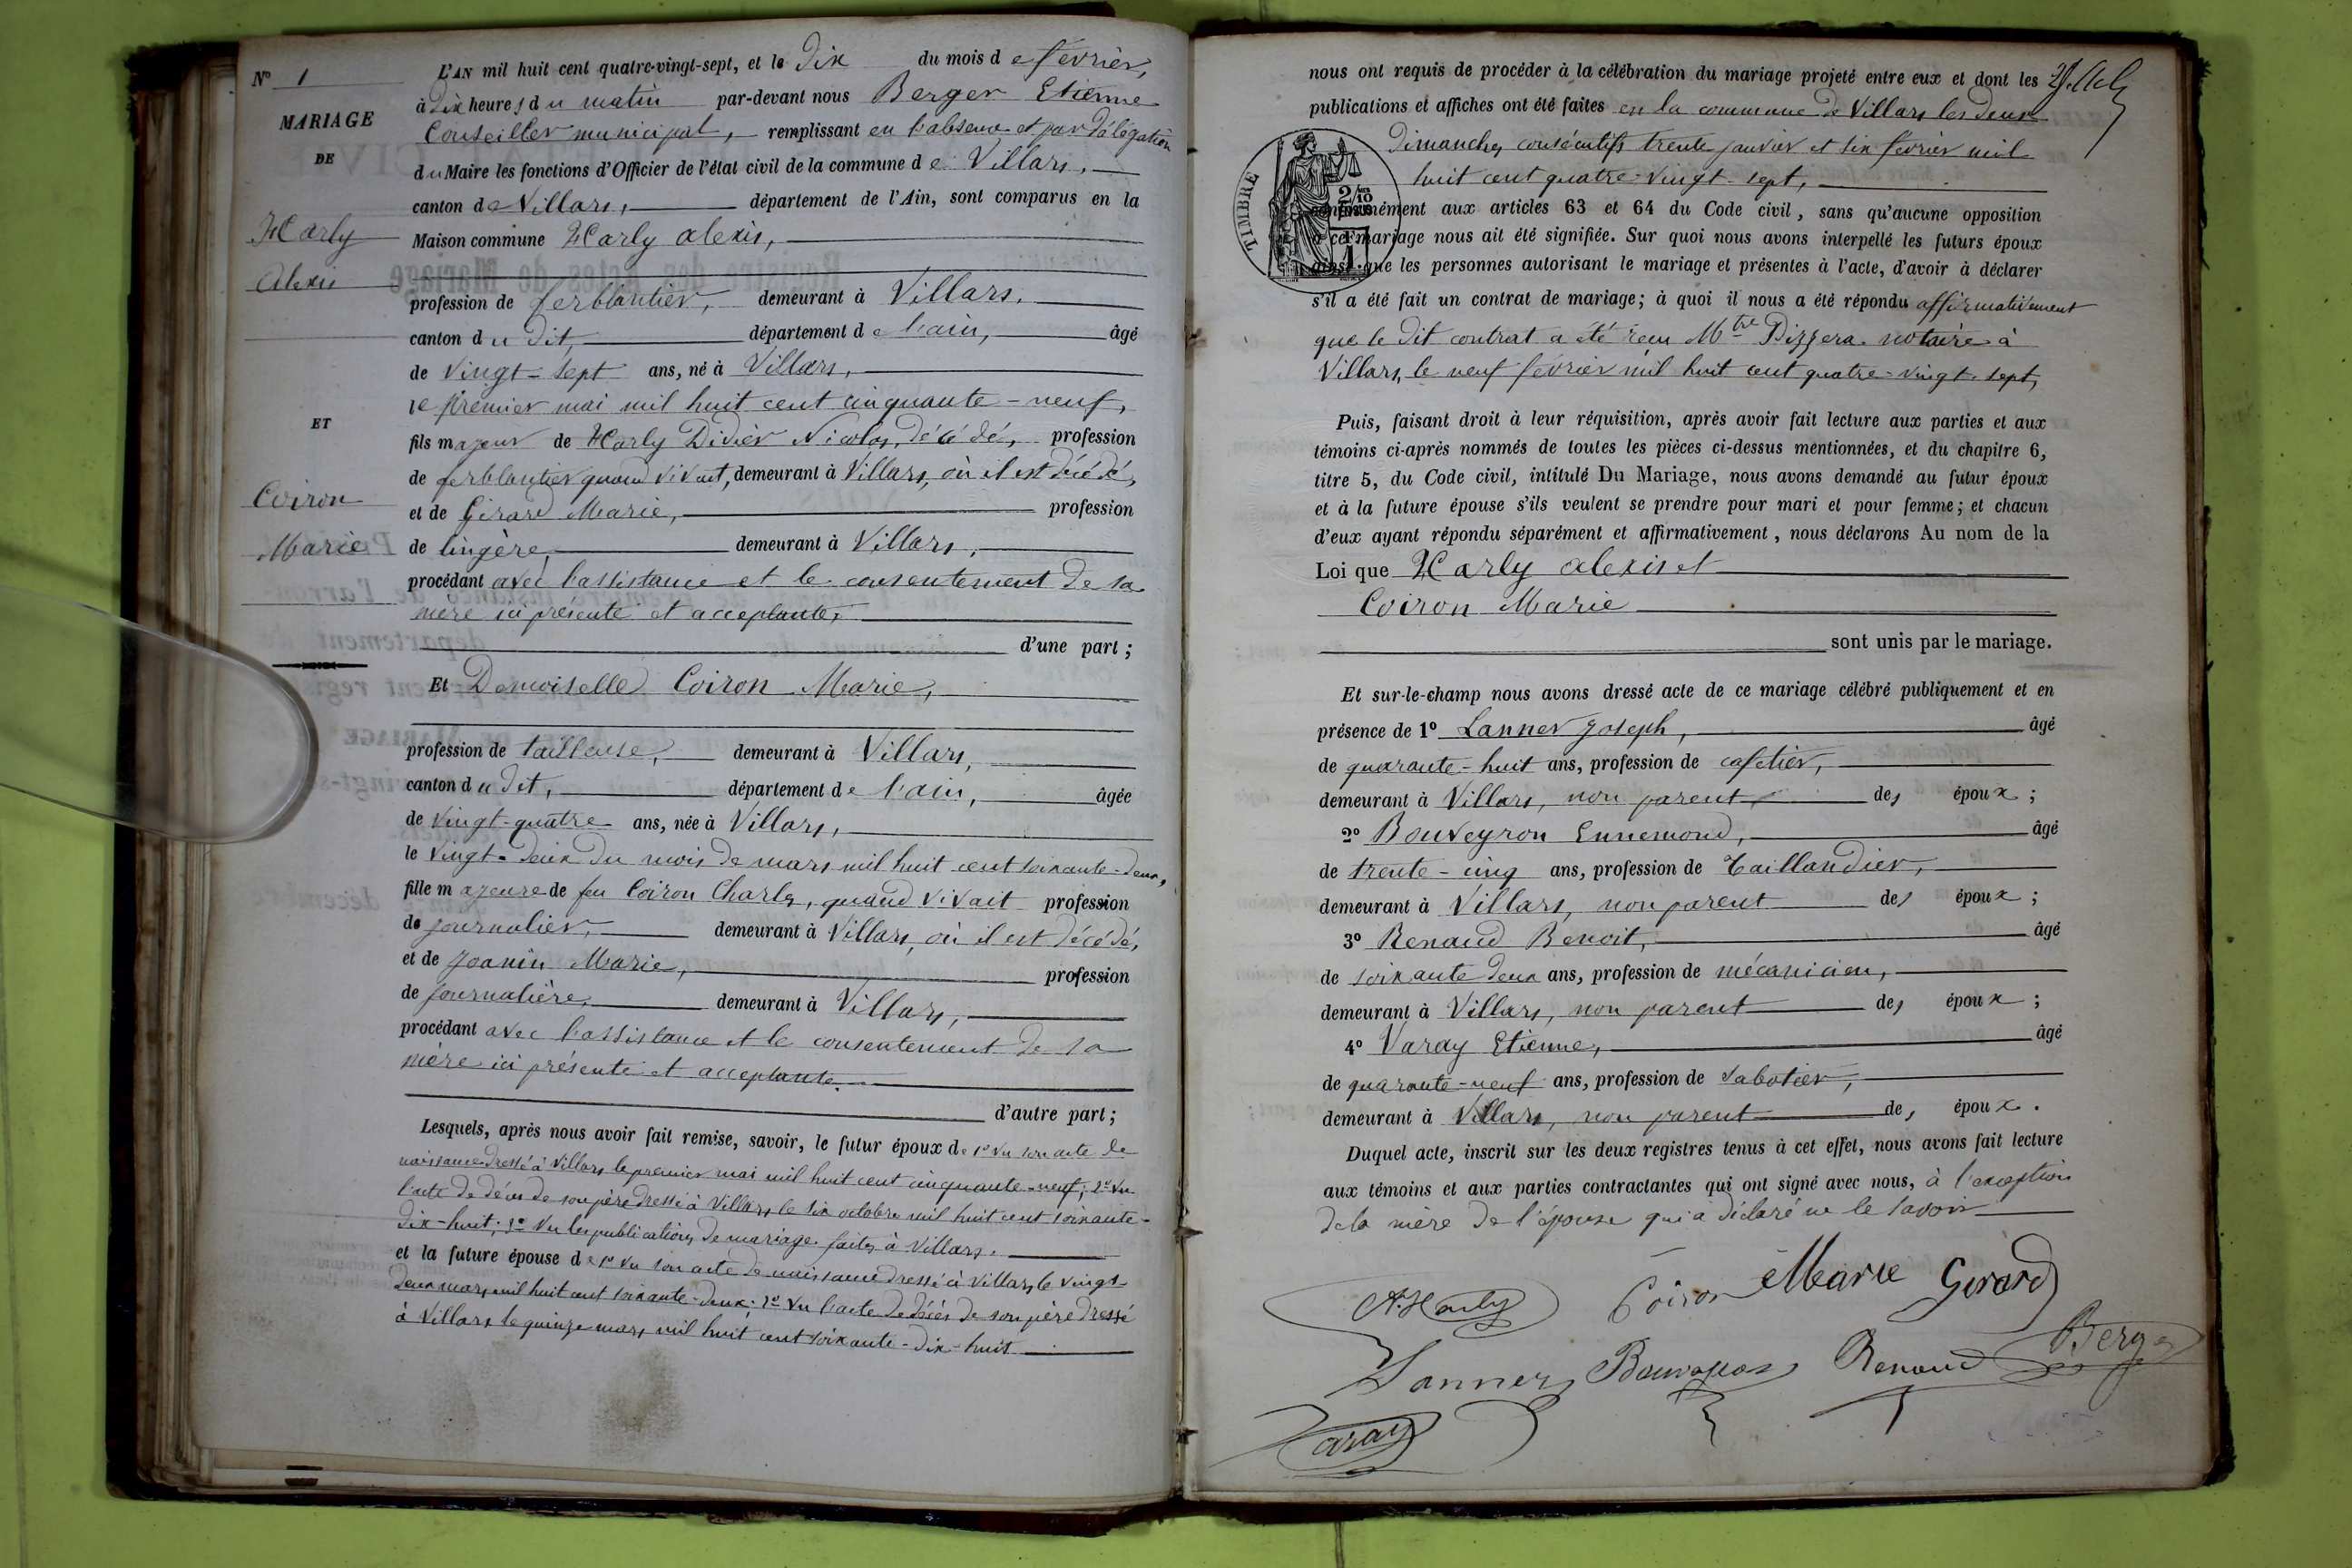 N° 1
MARIAGE
DE
Harly
Alexis
ET
Coiron
Marie
L'AN mil huit cent quatre-vingt-sept, et le Dix du mois de février,
à Dix heures du matin par-devant nous Berger Etienne
Conseiller municipal, remplissant en l'absence et par délégation
du Maire les fonctions d'Officier de l'état civil de la commune de Villars,
canton de Villars, département de l'Ain, sont comparus en la
Maison commune Harly alexis,
profession de ferblantier, demeurant à Villars,
canton du dit, département de l'ain, âgé
de vingt-sept ans, né à Villars,
le premier mai mil huit cent cinquante-neuf,
fils majeur de Harly Didier Nicolas, décédé, profession
de ferblantier quand vivait, demeurant à Villars, où il est décédé,
et de Girard Marie, profession
de lingère, demeurant à Villars,
procédant avec l'assistance et le consentement de sa
mère ici présente et acceptante,
d'une part ;
Et Demoiselle Coiron Marie,
profession de tailleuse, demeurant à Villars,
canton du dit, département de l'ain, âgée
de vingt-quatre ans, née à Villars,
le vingt-deux du mois de mars mil huit cent soixante-deux,
fille majeure de feu Coiron Charles, quand vivait profession
de journalier, demeurant à Villars, où il est décédé,
et de Joanin Marie, profession
de journalière, demeurant à Villars,
procédant avec l'assistance et le consentement de sa
mère ici présente et acceptante.
d'autre part ;
Lesquels, après nous avoir fait remise, savoir, le futur époux de 1° vu son acte de
naissance dressé à Villars le premier mai mil huit cent cinquante-neuf; 2° vu
l'acte de décès de son père dressé à Villars le six octobre mil huit cent soixante-
dix-huit; 3° vu les publications de mariage faites à Villars.
et la future épouse de 1° vu son acte de naissance dressé à Villars le vingt-
deux mars mil huit cent soixante-deux; 2° vu l'acte de décès de son père dressé
à Villars le quinze mars mil huit cent soixante-dix-huit
nous ont requis de procéder à la célébration du mariage projeté entre eux et dont les
publications et affiches ont été faites en la commune de Villars les deux
Dimanches consécutifs trente janvier et six février mil
huit cent quatre-vingt-sept,
TIMBRE
2/10
conformément aux articles 63 et 64 du Code civil, sans qu'aucune opposition
à ce mariage nous ait été signifiée. Sur quoi nous avons interpellé les futurs époux
ainsi que les personnes autorisant le mariage et présentes à l'acte, d'avoir à déclarer
s'il a été fait un contrat de mariage; à quoi il nous a été répondu affirmativement
que le dit contrat a été reçu Mtre Dizzera notaire à
Villars, le neuf février mil huit cent quatre-vingt-sept,
Puis, faisant droit à leur réquisition, après avoir fait lecture aux parties et aux
témoins ci-après nommés de toutes les pièces ci-dessus mentionnées, et du chapitre 6,
titre 5, du Code civil, intitulé Du Mariage, nous avons demandé au futur époux
et à la future épouse s'ils veulent se prendre pour mari et pour femme; et chacun
d'eux ayant répondu séparément et affirmativement, nous déclarons Au nom de la
Loi que Harly alexis et
Coiron Marie
sont unis par le mariage.
Et sur-le-champ nous avons dressé acte de ce mariage célébré publiquement et en
présence de 1° Lanner Joseph, âgé
de quarante-huit ans, profession de cafetier,
demeurant à Villars, non parent, des époux ;
2° Bouveyron Ennemond, âgé
de trente-cinq ans, profession de Taillandier,
demeurant à Villars, non parent des époux ;
3° Renaud Benoit, âgé
de soixante deux ans, profession de mécanicien,
demeurant à Villars, non parent des époux ;
4° Varay Etienne, âgé
de quarante-neuf ans, profession de sabotier,
demeurant à Villars, non parent des époux.
Duquel acte, inscrit sur les deux registres tenus à cet effet, nous avons fait lecture
aux témoins et aux parties contractantes qui ont signé avec nous, à l'exception
de la mère de l'épouse qui a déclaré ne le savoir
A. Harly Coiron Marie Girard
Lanner Bouveyron Renaud Berger
Varay